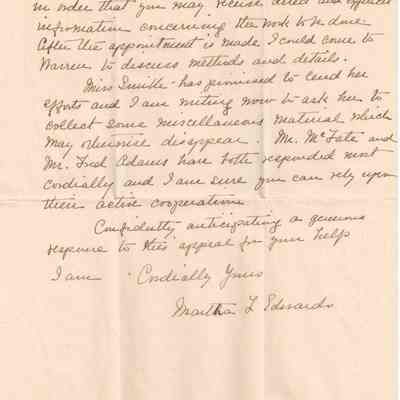 in order that you may receive direct and official
information concerning the work to be done
After the appointment is made I could come to
Warren to discuss methods and details.
Miss Smith has promised to lend her
efforts and I am writing now to ask her to
collect some miscellaneous material which
may otherwise disappear. Mr. McFate and
Mr. Fred Adams have both responded most
cordially and I am sure you can rely upon
their active cooperation
Confidently anticipating a generous
response to this appeal for your help
I am Cordially Yours
Martha L Edwards